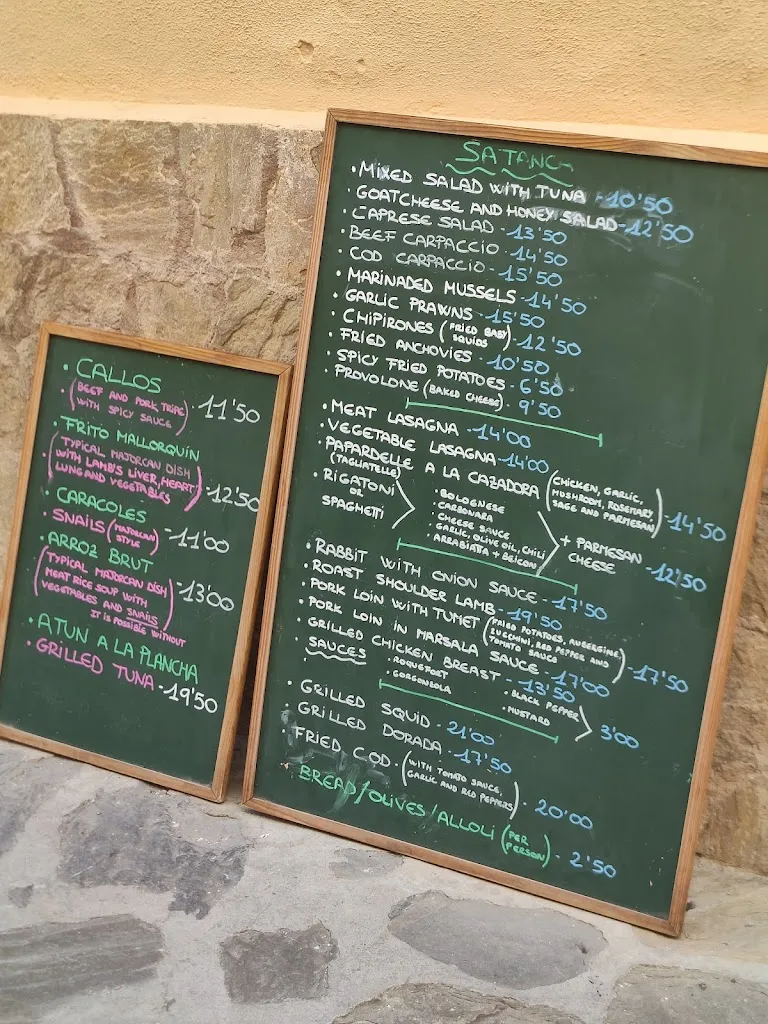 • CALLOS
• (BEEF AND PORK TRIPE
WITH SPICY SAUCE) - 11'50
• FRITO MALLORQUÍN
• (TYPICAL MAJORCAN DISH
WITH LAMB'S LIVER, HEART
LUNG AND VEGETABLES) - 12'50
• CARACOLES
• SNAILS (MAJORCAN
STYLE) - 11'00
• ARROZ BRUT
(TYPICAL MAJORCAN DISH
MEAT RICE SOUP WITH
VEGETABLES AND SNAILS) - 13'00
IT IS POSSIBLE WITHOUT
• ATUN A LA PLANCHA
• GRILLED TUNA - 19'50
SATANCA
• MIXED SALAD WITH TUNA - 10'50
• GOATCHEESE AND HONEY SALAD - 12'50
• CAPRESE SALAD - 13'50
• BEEF CARPACCIO - 14'50
• COD CARPACCIO - 15'50
• MARINADED MUSSELS - 14'50
• GARLIC PRAWNS - 15'50
• CHIPIRONES (FRIED BABY
SQUIDS) - 12'50
• FRIED ANCHOVIES - 10'50
• SPICY FRIED POTATOES - 6'50
• PROVOLONE (BAKED CHEESE) - 9'50
• MEAT LASAGNA - 14'00
• VEGETABLE LASAGNA - 14'00
• PAPARDELLE A LA CAZADORA (CHICKEN, GARLIC,
(TAGLIATELLE) MUSHROOM, ROSEMARY
SAGE AND PARMESAN) - 14'50
• RIGATONI
OR
SPAGHETTI
• BOLOGNESE
• CARBONARA
• CHEESE SAUCE
• GARLIC, OLIVE OIL, CHILI
• ARRABIATA + BEICON
+ PARMESAN
CHEESE - 12'50
• RABBIT WITH ONION SAUCE - 17'50
• ROAST SHOULDER LAMB - 19'50
• PORK LOIN WITH TUMET (FRIED POTATOES, AUBERGINE,
ZUCCHINI, RED PEPPER AND
TOMATO SAUCE) - 17'50
• PORK LOIN IN MARSALA SAUCE - 17'00
• GRILLED CHICKEN BREAST - 13'50
• SAUCES
• ROQUEFORT
• GORGONZOLA
• BLACK PEPPER
• MUSTARD
3'00
• GRILLED SQUID - 21'00
• GRILLED DORADA - 17'50
FRIED COD - (WITH TOMATO SAUCE,
GARLIC AND RED PEPPERS) - 20'00
BREAD/OLIVES/ALLOLI (PER
PERSON) - 2'50